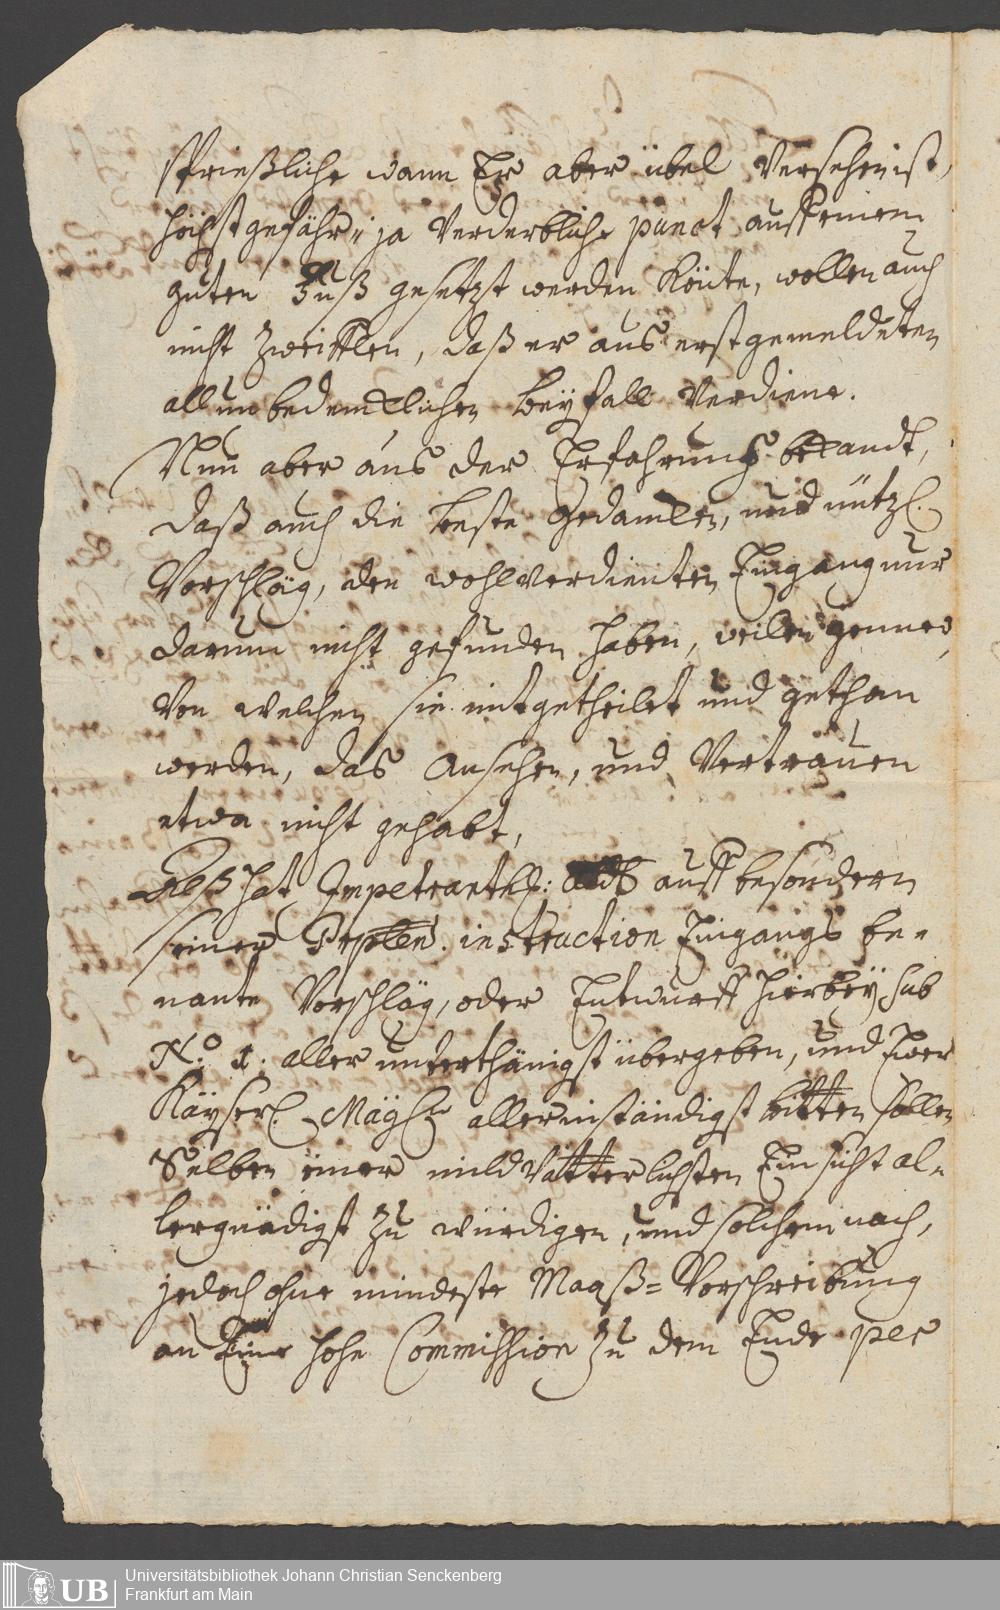 sprießliche wann Er aber übel Versehen ist,
höchstgefähr- ja Verderbliche punct auff einen
guten Fuß gesetzt werden könte, wollen auch
nicht zweifflen, daß er aus erstgemeldeten
all unbedencklichen beyfall Verdiene.
Nun aber aus der Erfahrung bekandt,
daß auch die beste Gedancken, und nützl.
Vorschläg, den wohlverdienten Eingang nur
darum nicht gefunden haben, weilen jenne,
Von welchen sie mitgetheilet und gethan
werden, das Ansehen, und Vertrauen
etwa nicht gehabt,
Alß hat Impetrantisch: auff besondern
seiner instruction Eingangs be-
nante Vorschläg, oder Entwurff hierbey sub
N.o 1. aller unterthänigst übergeben, und Ewer
Kayserl. Mayst. allerinständigst bitten sollen
Selben einer mild Vätterlichsten Einsicht al-
lergnädigst zu würdigen, und solchem nach,
jedoch ohne mindeste Maaß-Vorschreibung
an Eine hohe Commission zu dem Ende per
UB
Universitätsbibliothek Johann Christian Senckenberg
Frankfurt am Main